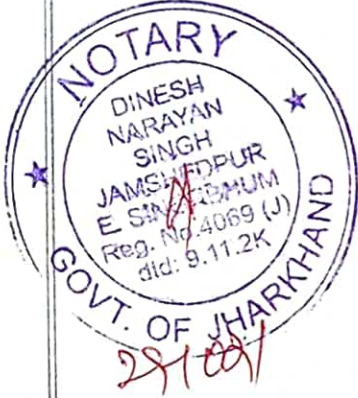 NOTARY
DINESH
NARAYAN
SINGH
JAMSHEDPUR
E. SINGHBHUM
Reg. No. 4069 (J)
dtd: 9.11.2K
GOVT. OF JHARKHAND